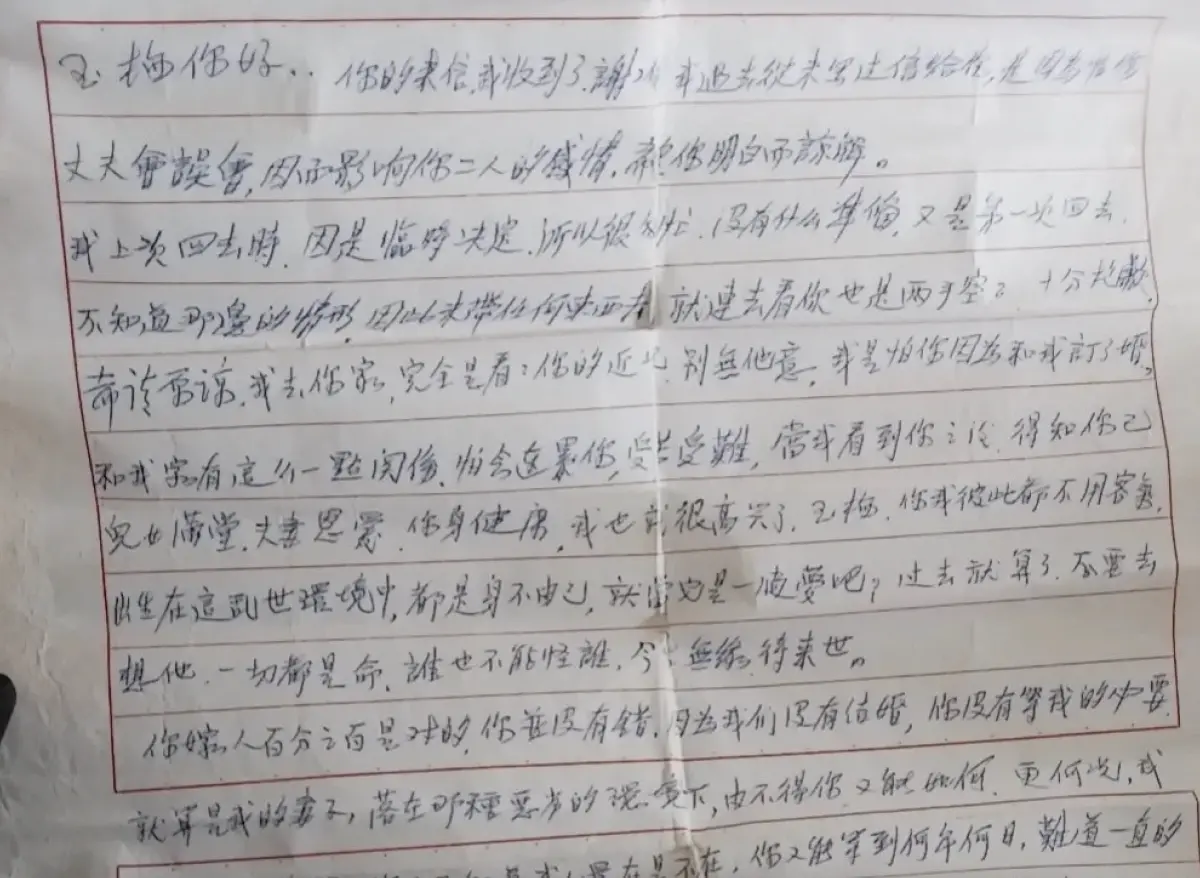 玉梅你好.. 你的来信,我收到了,謝々你 我过去從未写过信給你,是因为怕你
丈夫會誤會,因而影响你二人的感情,請你明白而諒解。
我上次回去時,因是臨時决定,所以很匆忙,没有什么準備,又是第一次回去,
不知道那邊的情形,因此未帶任何東西 就連去看你也是两手空々 十分抱歉,
希請原諒,我去你家,完全是看々你的近况,别無他意,我是怕你因为和我訂了婚,
和我家有這么一點関係,怕会連累你,受苦受難,當我看到你之後,得知你已
兒女滿堂,夫妻恩愛,你身健康,我也就很高兴了,玉梅,你我彼此都不用客氣,
此生在這乱世環境中,都是身不由己,就當它是一塲夢吧?过去就算了,不要去
想他,一切都是命,誰也不能怪誰,今生無緣,待来世。
你嫁人百分之百是对的,你並没有错,因为我们没有结婚,你没有等我的必要,
就算是我的妻子,落在那種恶劣的環境下,由不得你,又能如何,更何况,我
是在是不在,你又能等到何年何月,難道一直的